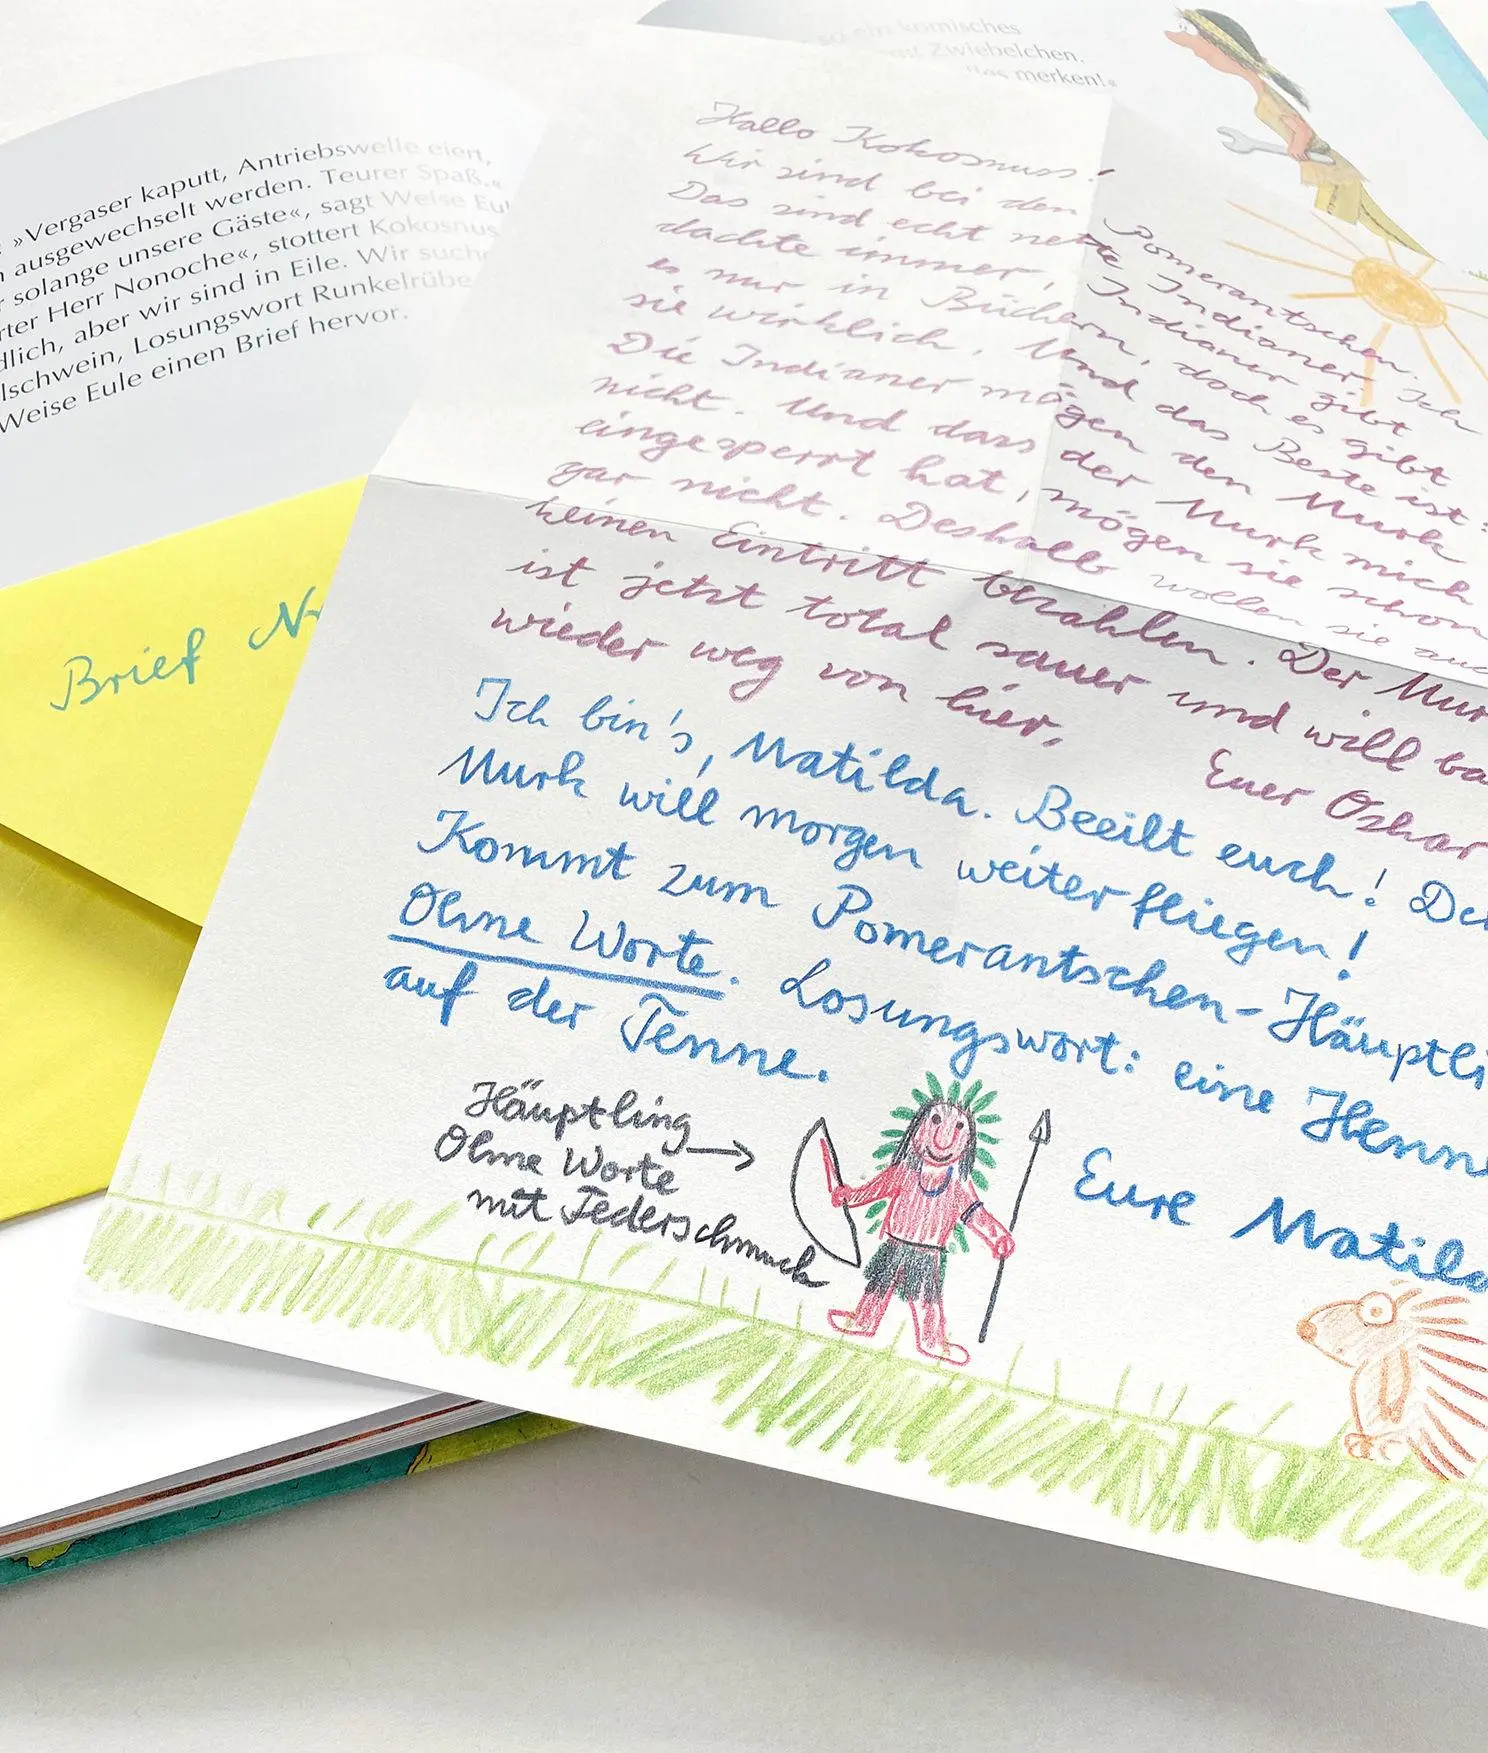 »Vergaser kaputt, Antriebswelle eiert,
ausgewechselt werden. Teurer Spaß.«
solange unsere Gäste«, sagt Weise Eul
Herr Nonoche«, stottert Kokosnus
aber wir sind in Eile. Wir suche
Losungswort Runkelrübe
Weise Eule einen Brief hervor.
so ein komisches
Zwiebelchen.
merken!«
Brief N
Hallo Kokosnuss!
Wir sind bei den Pomerantschen.
Das sind echt nette Indianer. Ich
dachte immer, Indianer gibt
es nur in Büchern, doch es gibt
sie wirklich. Und das Beste ist:
Die Indianer mögen den Murk
nicht. Und dass der Murk mich
eingesperrt hat, mögen sie schon
gar nicht. Deshalb wollen sie auc
keinen Eintritt bezahlen. Der Mur
ist jetzt total sauer und will ba
wieder weg von hier.
Euer Oskar
Ich bin's, Matilda. Beeilt euch! De
Murk will morgen weiterfliegen!
Kommt zum Pomerantschen-Häuptli
Ohne Worte. Losungswort: eine Henne
auf der Tenne.
Eure Matilda
Häuptling
Ohne Worte
mit Federschmuck